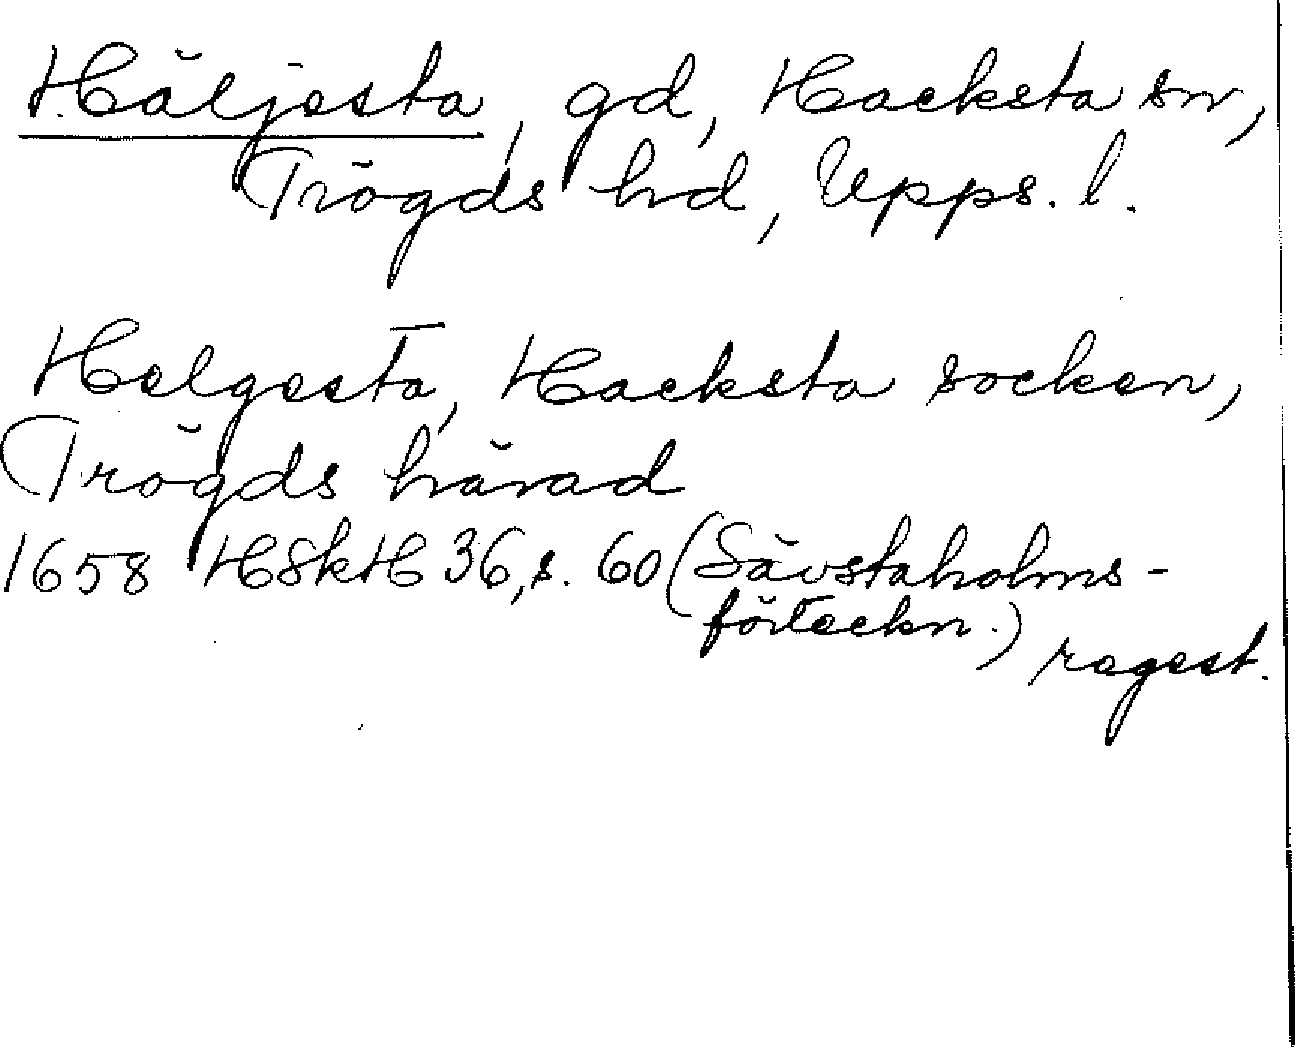 Häljesta, gd, Hacksta sn,
Trögds hd, Upps. l.
Helgesta, Hacksta socken,
Trögds härad
1658 HSkH 36, s. 60 (Sävstaholms-
förteckn.) regest.